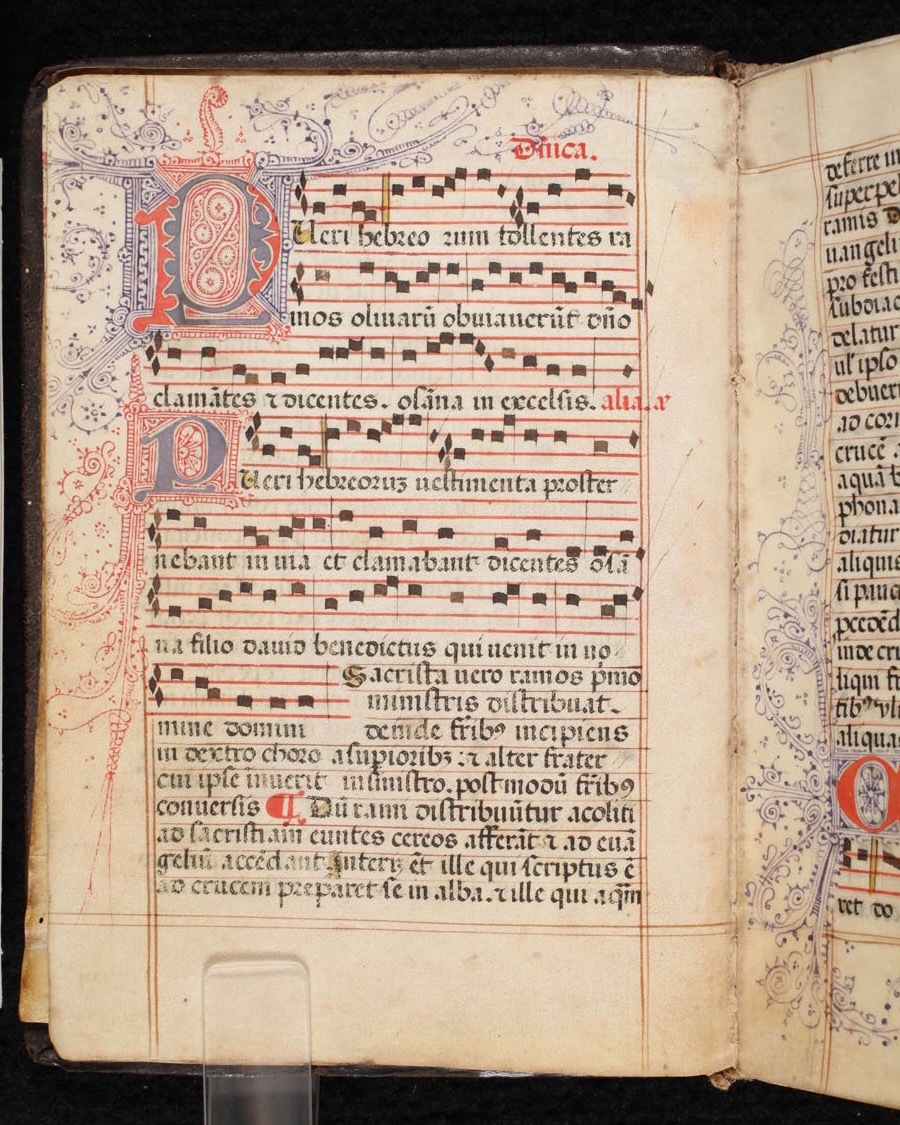 Dñica.
PUeri hebreo rum tollentes ra
mos oliuarũ obuiauerũt dño
clamãtes ⁊ dicentes. osãna in excelsis. alia.a᷑
PUeri hebreoruʒ uestimenta proster
nebant in uia et clamabant dicentes osã
na filio dauid benedictus qui uenit in no
Sacrista uero ramos p̃mo
ministris distribuat.
mine domini deinde fr̃ibꝰ incipiens
in dextro choro a supioribʒ : ⁊ alter frater
cui ipse iniuerit in sinistro. postmodũ fr̃ibꝰ
conuersis ¶ Dũ rami distribuũtur acoliti
ad sacristiam euntes cereos afferãt ⁊ ad euã
geliũ accedant. Interĩ et ille qui scriptus ẽ
ad crucem preparet se in alba. ⁊ ille qui aqm̃
deferre in
super pel
ramis
uangeli
pro festi
subdiac
delatur
ul' ipso
debuer
ad cor
crucẽ
aquã b
phona
diatur
aliquis
si pauc
pcedẽd
inde cru
liqm fr
aliqua
ret do